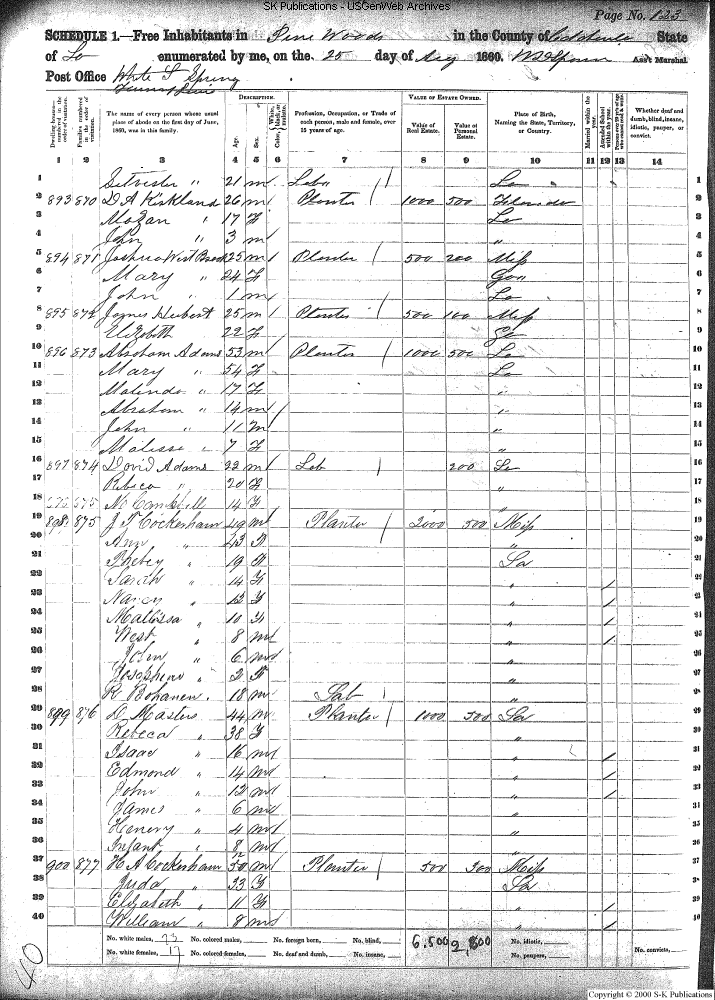 SK Publications - USGenWeb Archives
Page No. 123
SCHEDULE 1.—Free Inhabitants in Pine Woods in the County of State
of La enumerated by me, on the 25 day of Aug 1860. Ass't Marshal
Post Office White S Spring
DESCRIPTION. VALUE OF ESTATE OWNED.
Dwelling-houses—numbered in the order of visitation. Families numbered in the order of visitation. The name of every person whose usual place of abode on the first day of June, 1860, was in this family. Age. Sex. Color, White, black, or mulatto. Profession, Occupation, or Trade of each person, male and female, over 15 years of age. Value of Real Estate. Value of Personal Estate. Place of Birth, Naming the State, Territory, or Country. Married within the year. Attended School within the year. Whether deaf and dumb, blind, insane, idiotic, pauper, or convict.
1 2 3 4 5 6 7 8 9 10 11 12 13 14
1 " 21 m / La 1
2 893 870 D A Kirkland 26 m Planter / 1000 500 2
3 " 17 F La 3
4 John " 3 m " 4
5 894 871 Joshua West 25 m Planter / 500 200 Miss 5
6 Mary " 24 F 6
7 John " 1 m La 7
8 895 872 Hubert 25 m Planter / 500 100 Miss 8
9 Elizabeth 22 F 9
10 896 873 Abraham Adams 53 m Planter / 1000 500 La 10
11 Mary " 54 F La 11
12 Malinda " 17 F " 12
13 Abraham " 14 m " 13
14 John " 11 m " 14
15 Malissa " 7 F " 15
16 897 874 David Adams 22 m Lab / 200 La 16
17 Rebeca " 20 F " 17
18 875 14 F 18
19 898 875 J T Cockerham 49 m Planter / 2000 500 Miss 19
20 Ann " 43 F " 20
21 Phebey " 19 F La 21
22 Sarah " 14 F " / 22
23 Nancy " 12 F " / 23
24 " 10 F " / 24
25 West " 8 m " / 25
26 John " 6 m " 26
27 Josephene " 2 F " 27
28 R Bohanen. 18 m Lab / " 28
29 899 876 D Masters 44 m Planter / 1000 500 La 29
30 Rebeca " 38 F " 30
31 Isaac " 16 m " / 31
32 Edmond " 14 m " / 32
33 John " 12 m " / 33
34 James " 6 m " 34
35 Henery " 4 m " 35
36 Infant " 8/12 m " 36
37 900 877 H A Cockerham 50 m Planter / 500 300 Miss 37
38 Juda " 33 F La 38
39 Elizabeth " 11 F " / 39
40 William " 8 m " / 40
No. white males, 23 No. colored males, No. foreign born, No. blind, 6,500 2,800 No. idiotic, No. convicts,
No. white females, 17 No. colored females, No. deaf and dumb, No. insane, No. paupers,
40
Copyright © 2000 S-K Publications